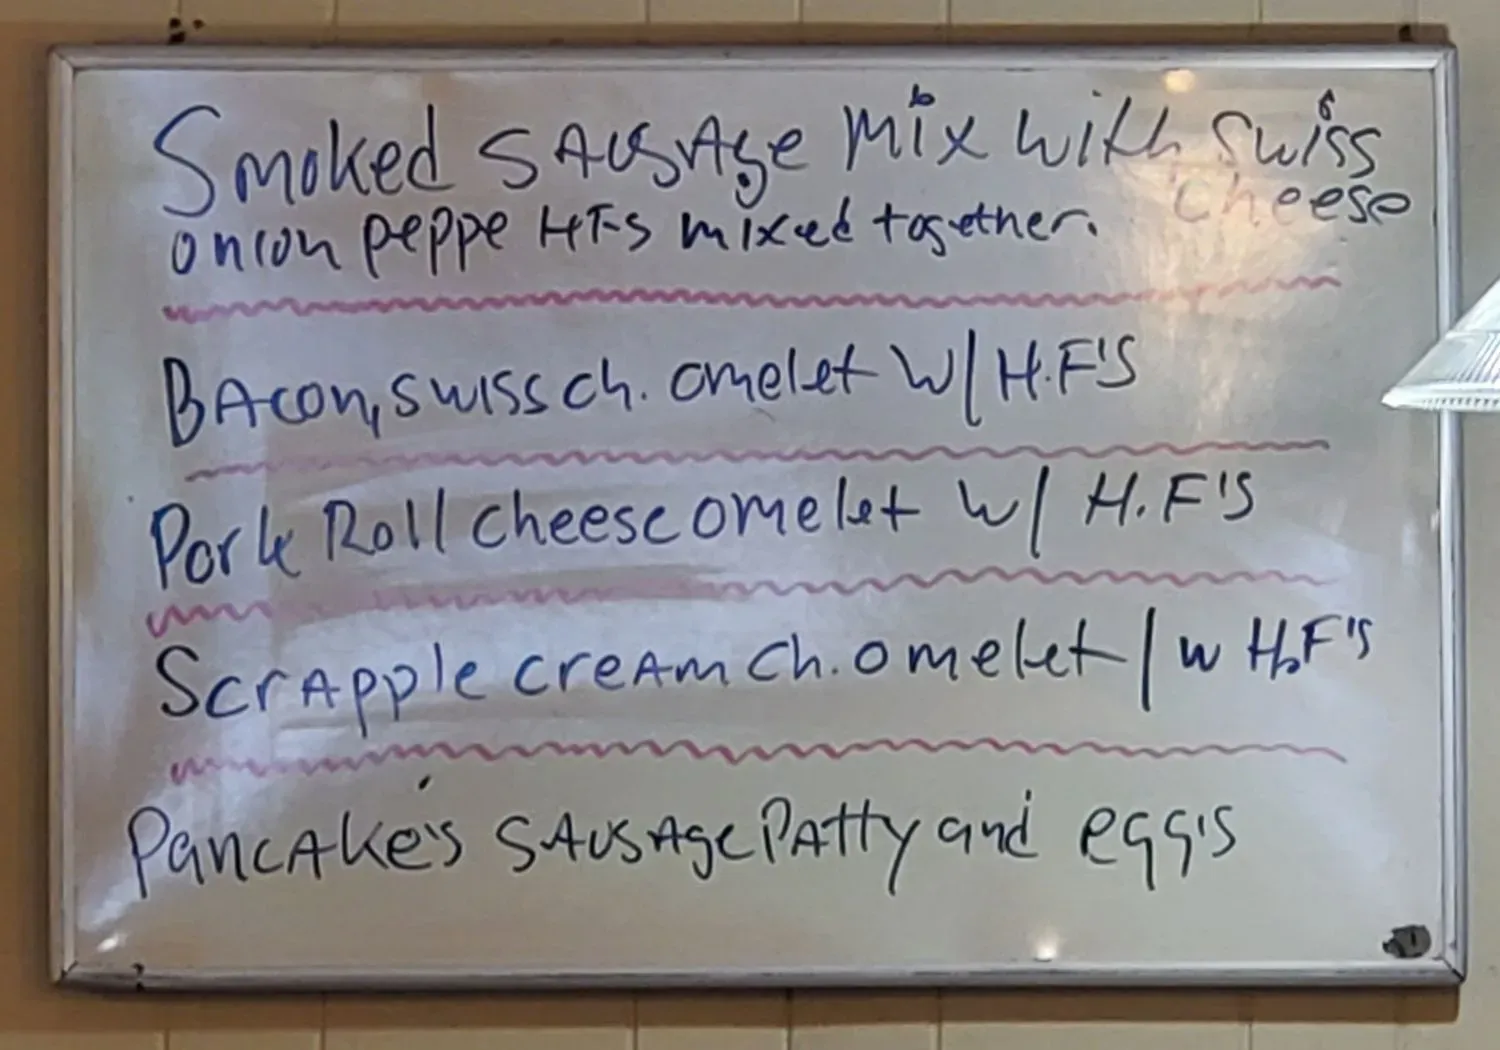 Smoked SAUSAge Mix with Swiss
cheese
onion peppe HF-S mixed together.
BAcon, swiss ch. omelet W/ H.F'S
Pork Roll cheese omelet w/ H.F'S
ScrApple creAm ch. omelet / w H.F'S
PancAke's SAUSAge PAtty and egg's